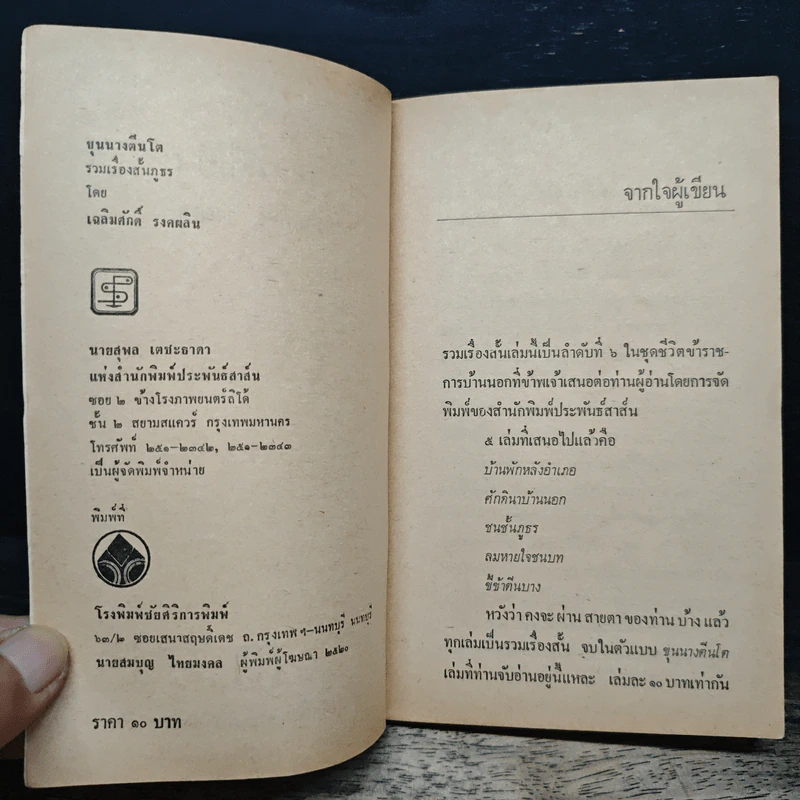 ขุนนางตีนโต
รวมเรื่องสั้นภูธร
โดย
เฉลิมศักดิ์ รงคผลิน
นายสุพล เตชะธาดา
แห่งสำนักพิมพ์ประพันธ์สาส์น
ซอย ๒ ข้างโรงภาพยนตร์ลิโด้
ชั้น ๒ สยามสแควร์ กรุงเทพมหานคร
โทรศัพท์ ๒๕๑-๒๓๔๒, ๒๕๑-๒๓๔๓
เป็นผู้จัดพิมพ์จำหน่าย
พิมพ์ที่
โรงพิมพ์ชัยศิริการพิมพ์
๖๓/๒ ซอยเสนาสฤษดิ์เดช ถ.กรุงเทพ ฯ-นนทบุรี นนทบุรี
นายสมบุญ ไทยมงคล ผู้พิมพ์ผู้โฆษณา ๒๕๒๐
ราคา ๑๐ บาท
จากใจผู้เขียน
รวมเรื่องสั้นเล่มนี้เป็นลำดับที่ ๖ ในชุดชีวิตข้าราช-
การบ้านนอกที่ข้าพเจ้าเสนอต่อท่านผู้อ่านโดยการจัด
พิมพ์ของสำนักพิมพ์ประพันธ์สาส์น
๕ เล่มที่เสนอไปแล้วคือ
บ้านพักหลังอำเภอ
ศักดินาบ้านนอก
ชนชั้นภูธร
ลมหายใจชนบท
ขี้ข้าตีนบาง
หวังว่า คงจะ ผ่าน สายตา ของท่าน บ้าง แล้ว
ทุกเล่มเป็นรวมเรื่องสั้น จบในตัวแบบ ขุนนางตีนโต
เล่มที่ท่านจับอ่านอยู่นี้แหละ เล่มละ ๑๐ บาทเท่ากัน